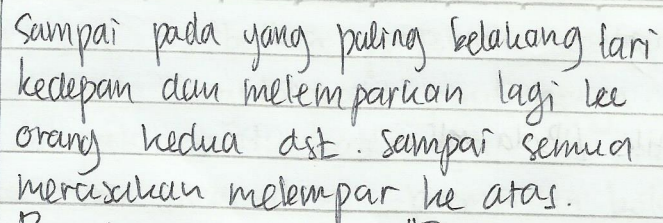 Sampai pada yang paling belakang lari
kedepan dan melemparkan lagi ke
orang kedua dst. Sampai semua
merasakan melempar ke atas.